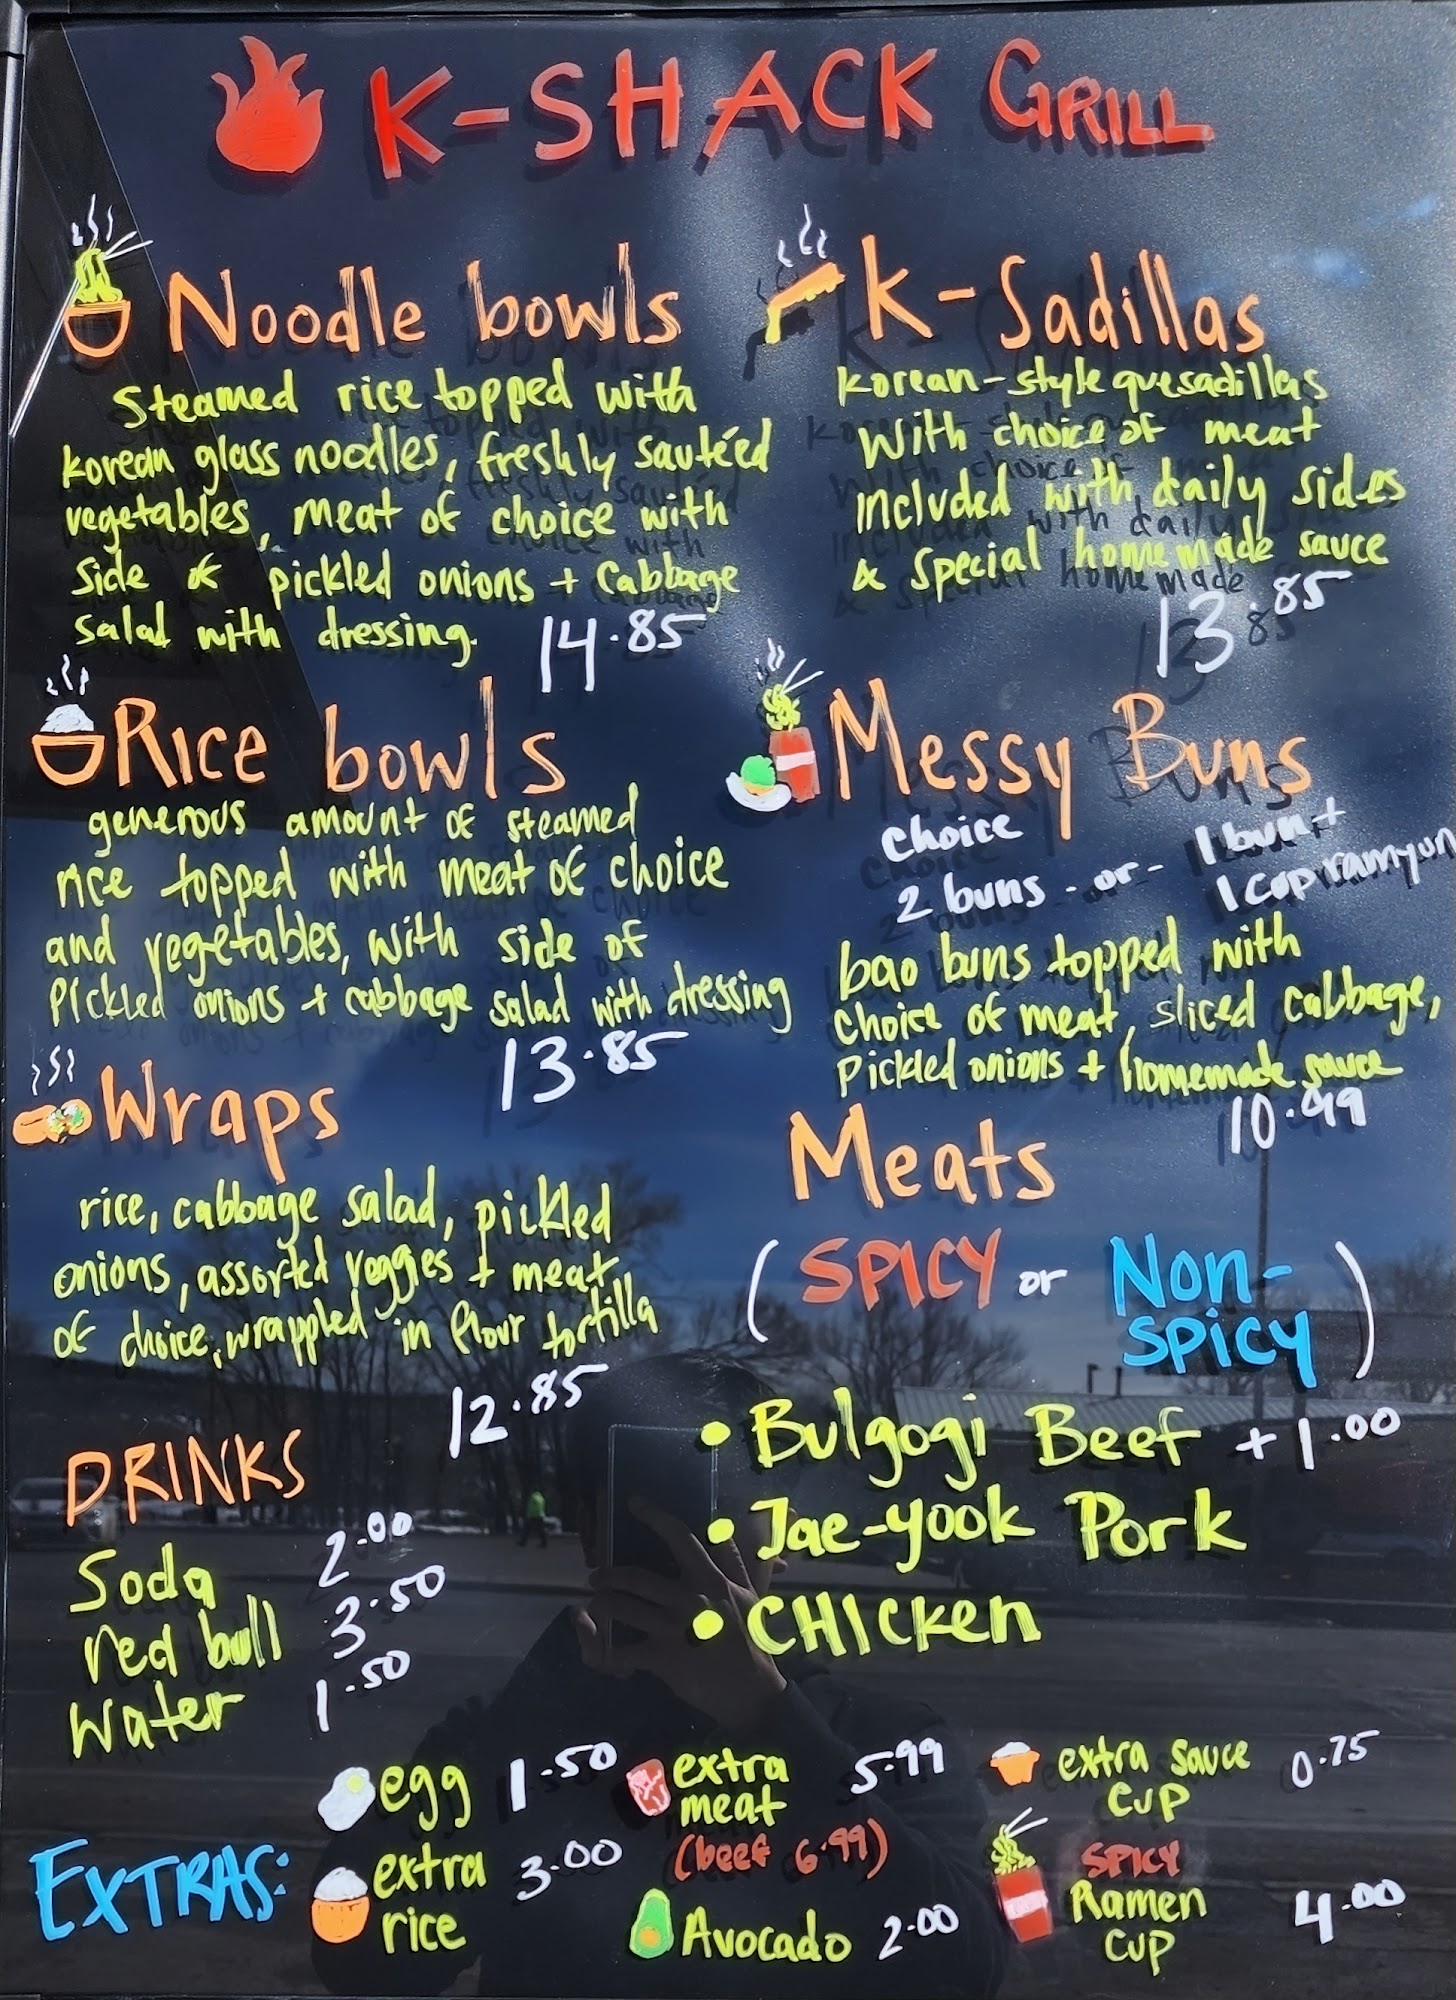 K-SHACK GRILL
Noodle bowls
Steamed rice topped with
korean glass noodles, freshly sautéed
vegetables, meat of choice with
side of pickled onions + cabbage
salad with dressing.
14.85
Rice bowls
generous amount of steamed
rice topped with meat of choice
and vegetables, with side of
Pickled onions + cabbage salad with dressing
13.85
Wraps
rice, cabbage salad, pickled
onions, assorted veggies + meat
of choice, wrappled in flour tortilla
12.85
DRINKS
Soda 2.00
red bull 3.50
water 1.50
K-Sadillas
korean-style quesadillas
with choice of meat
included with daily sides
& special homemade sauce
13.85
Messy Buns
choice
2 buns -or- 1 bun +
1 cup ramyun
bao buns topped with
choice of meat, sliced cabbage,
pickled onions + homemade sauce
10.99
Meats
(SPICY or NON-
SPICY)
• Bulgogi Beef +1.00
• Jae-yook Pork
• CHICKEN
EXTRAS:
egg 1.50
extra
rice 3.00
extra
meat 5.99
(beef 6.99)
Avocado 2.00
extra sauce
cup 0.75
SPICY
Ramen
cup 4.00